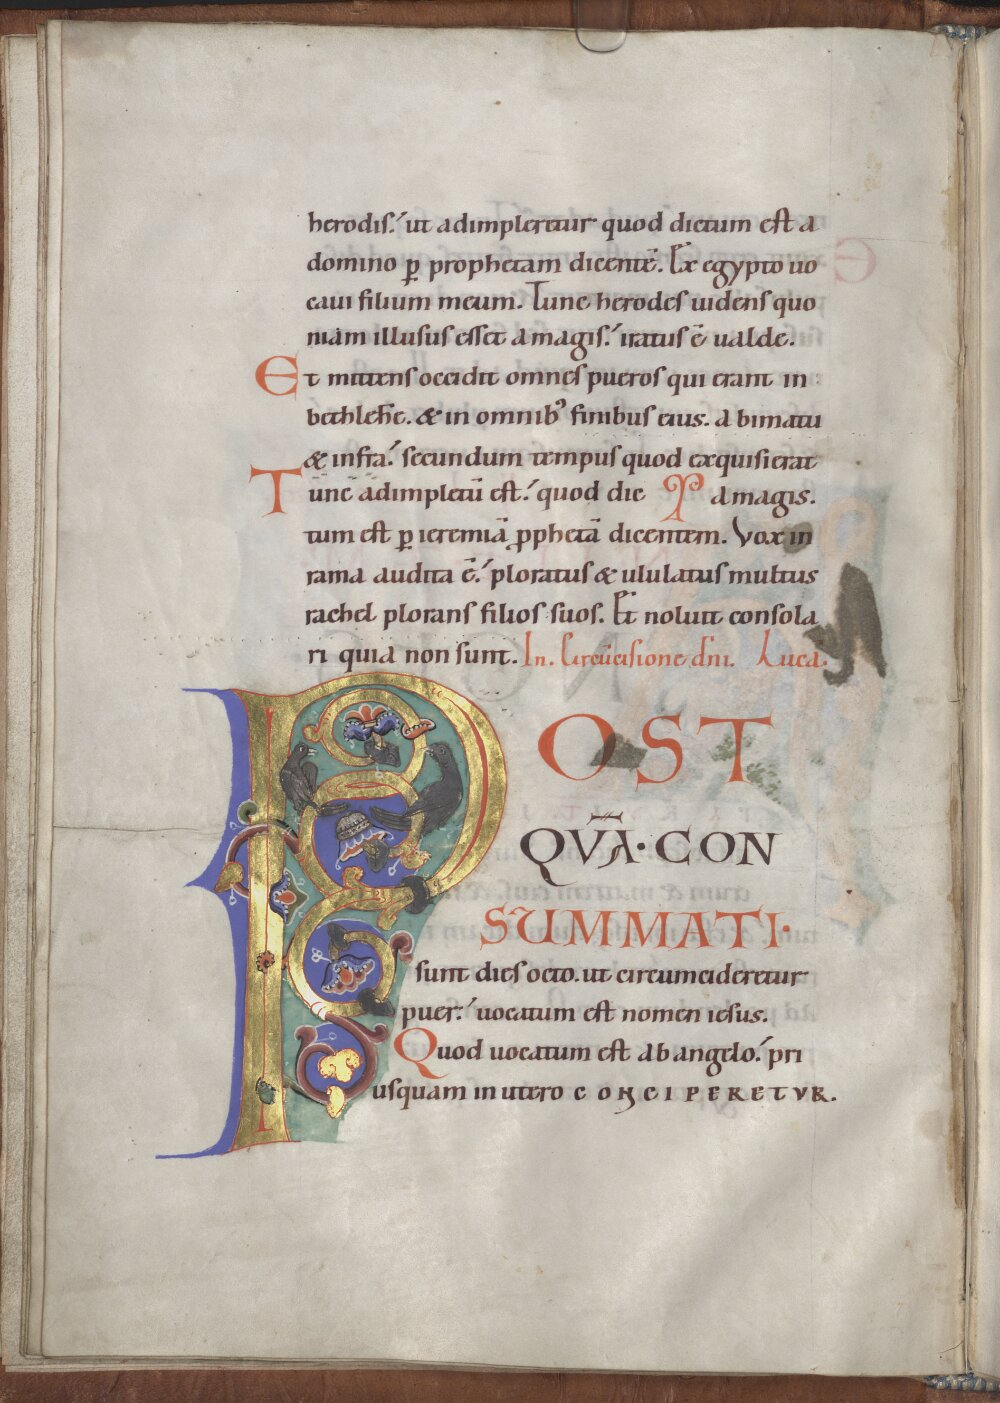 herodis:́ ut adimpleretur quod dictum est a
domino ꝑ prophetam dicentē. Ex egypto uo
caui filium meum. Tunc herodes uidens quo
niam illusus esset a magis:́ iratus ē ualde.
Et mittens occidit omnes pueros qui erant in
bethlehē. & in omnibꝰ finibus eius. a bimatu
& infra:́ secundum tempus quod exquisierat
Tunc adimpletū est:́ quod dic a magis.
tum est ꝑ ieremiā ꝓphetā dicentem. Vox in
rama audita ē:́ ploratus & ululatus multus
rachel plorans filios suos. Et noluit consola
ri quia non sunt. In. Circūcisione dn̄i. Luca.
POST
QVĀ·CON
SUMMATI·
sunt dies octo. ut circumcideretur
puer:́ uocatum est nomen iesus.
Quod uocatum est ab angelo:́ pri
usquam in utero CONCIPERETVR.